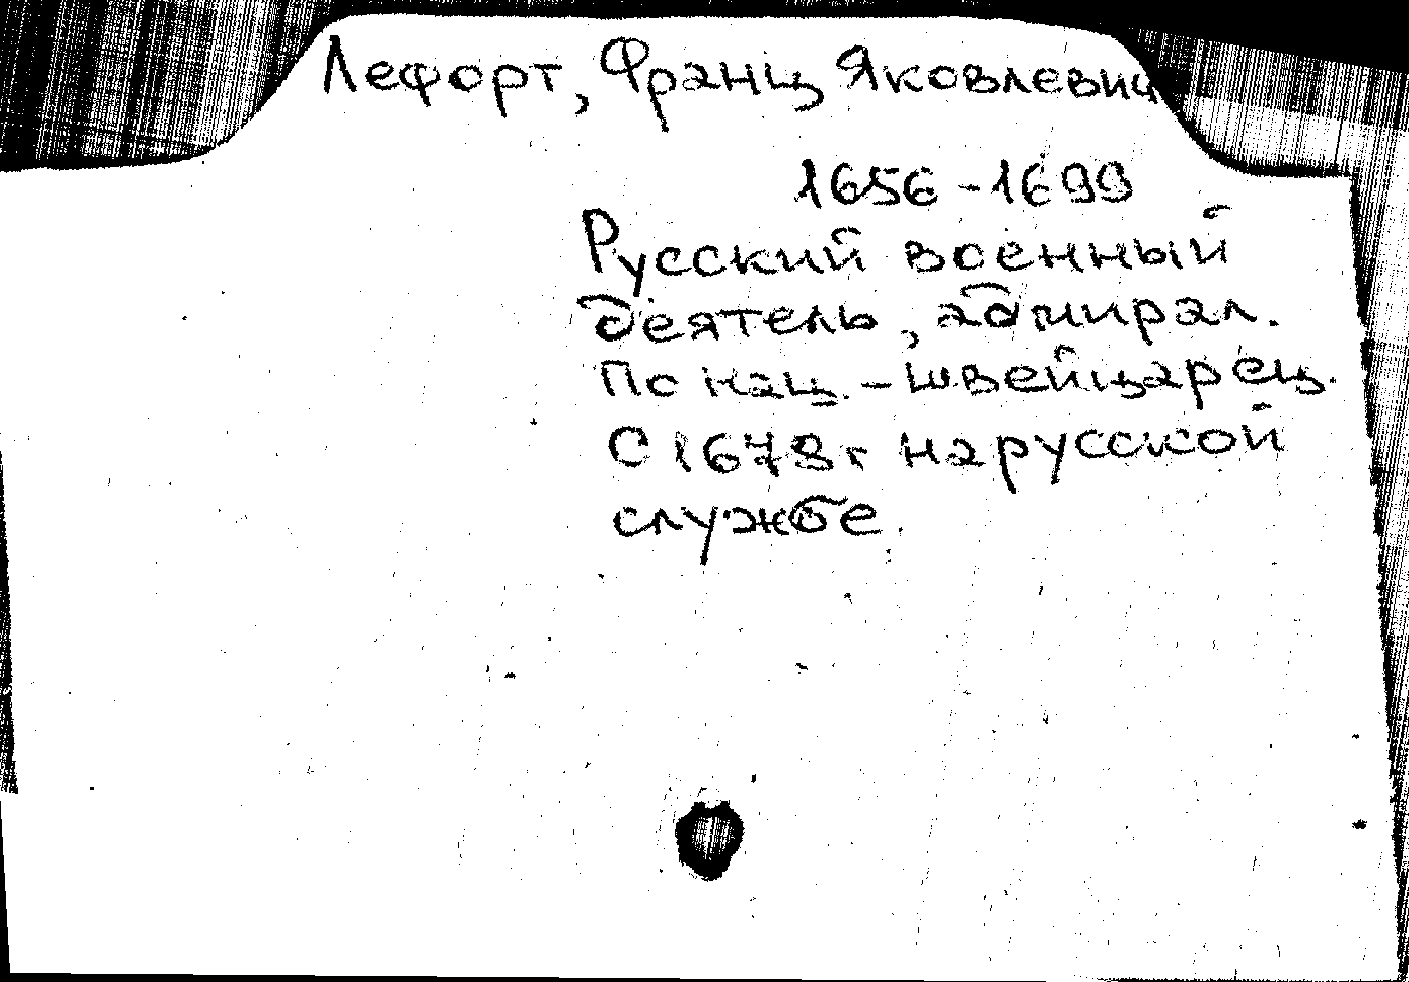 Лефорт, Франц Яковлевич
1656-1699
Русский военный
деятель, адмирал.
По нац. - швейцарец.
С 1678 г на русской
службе.